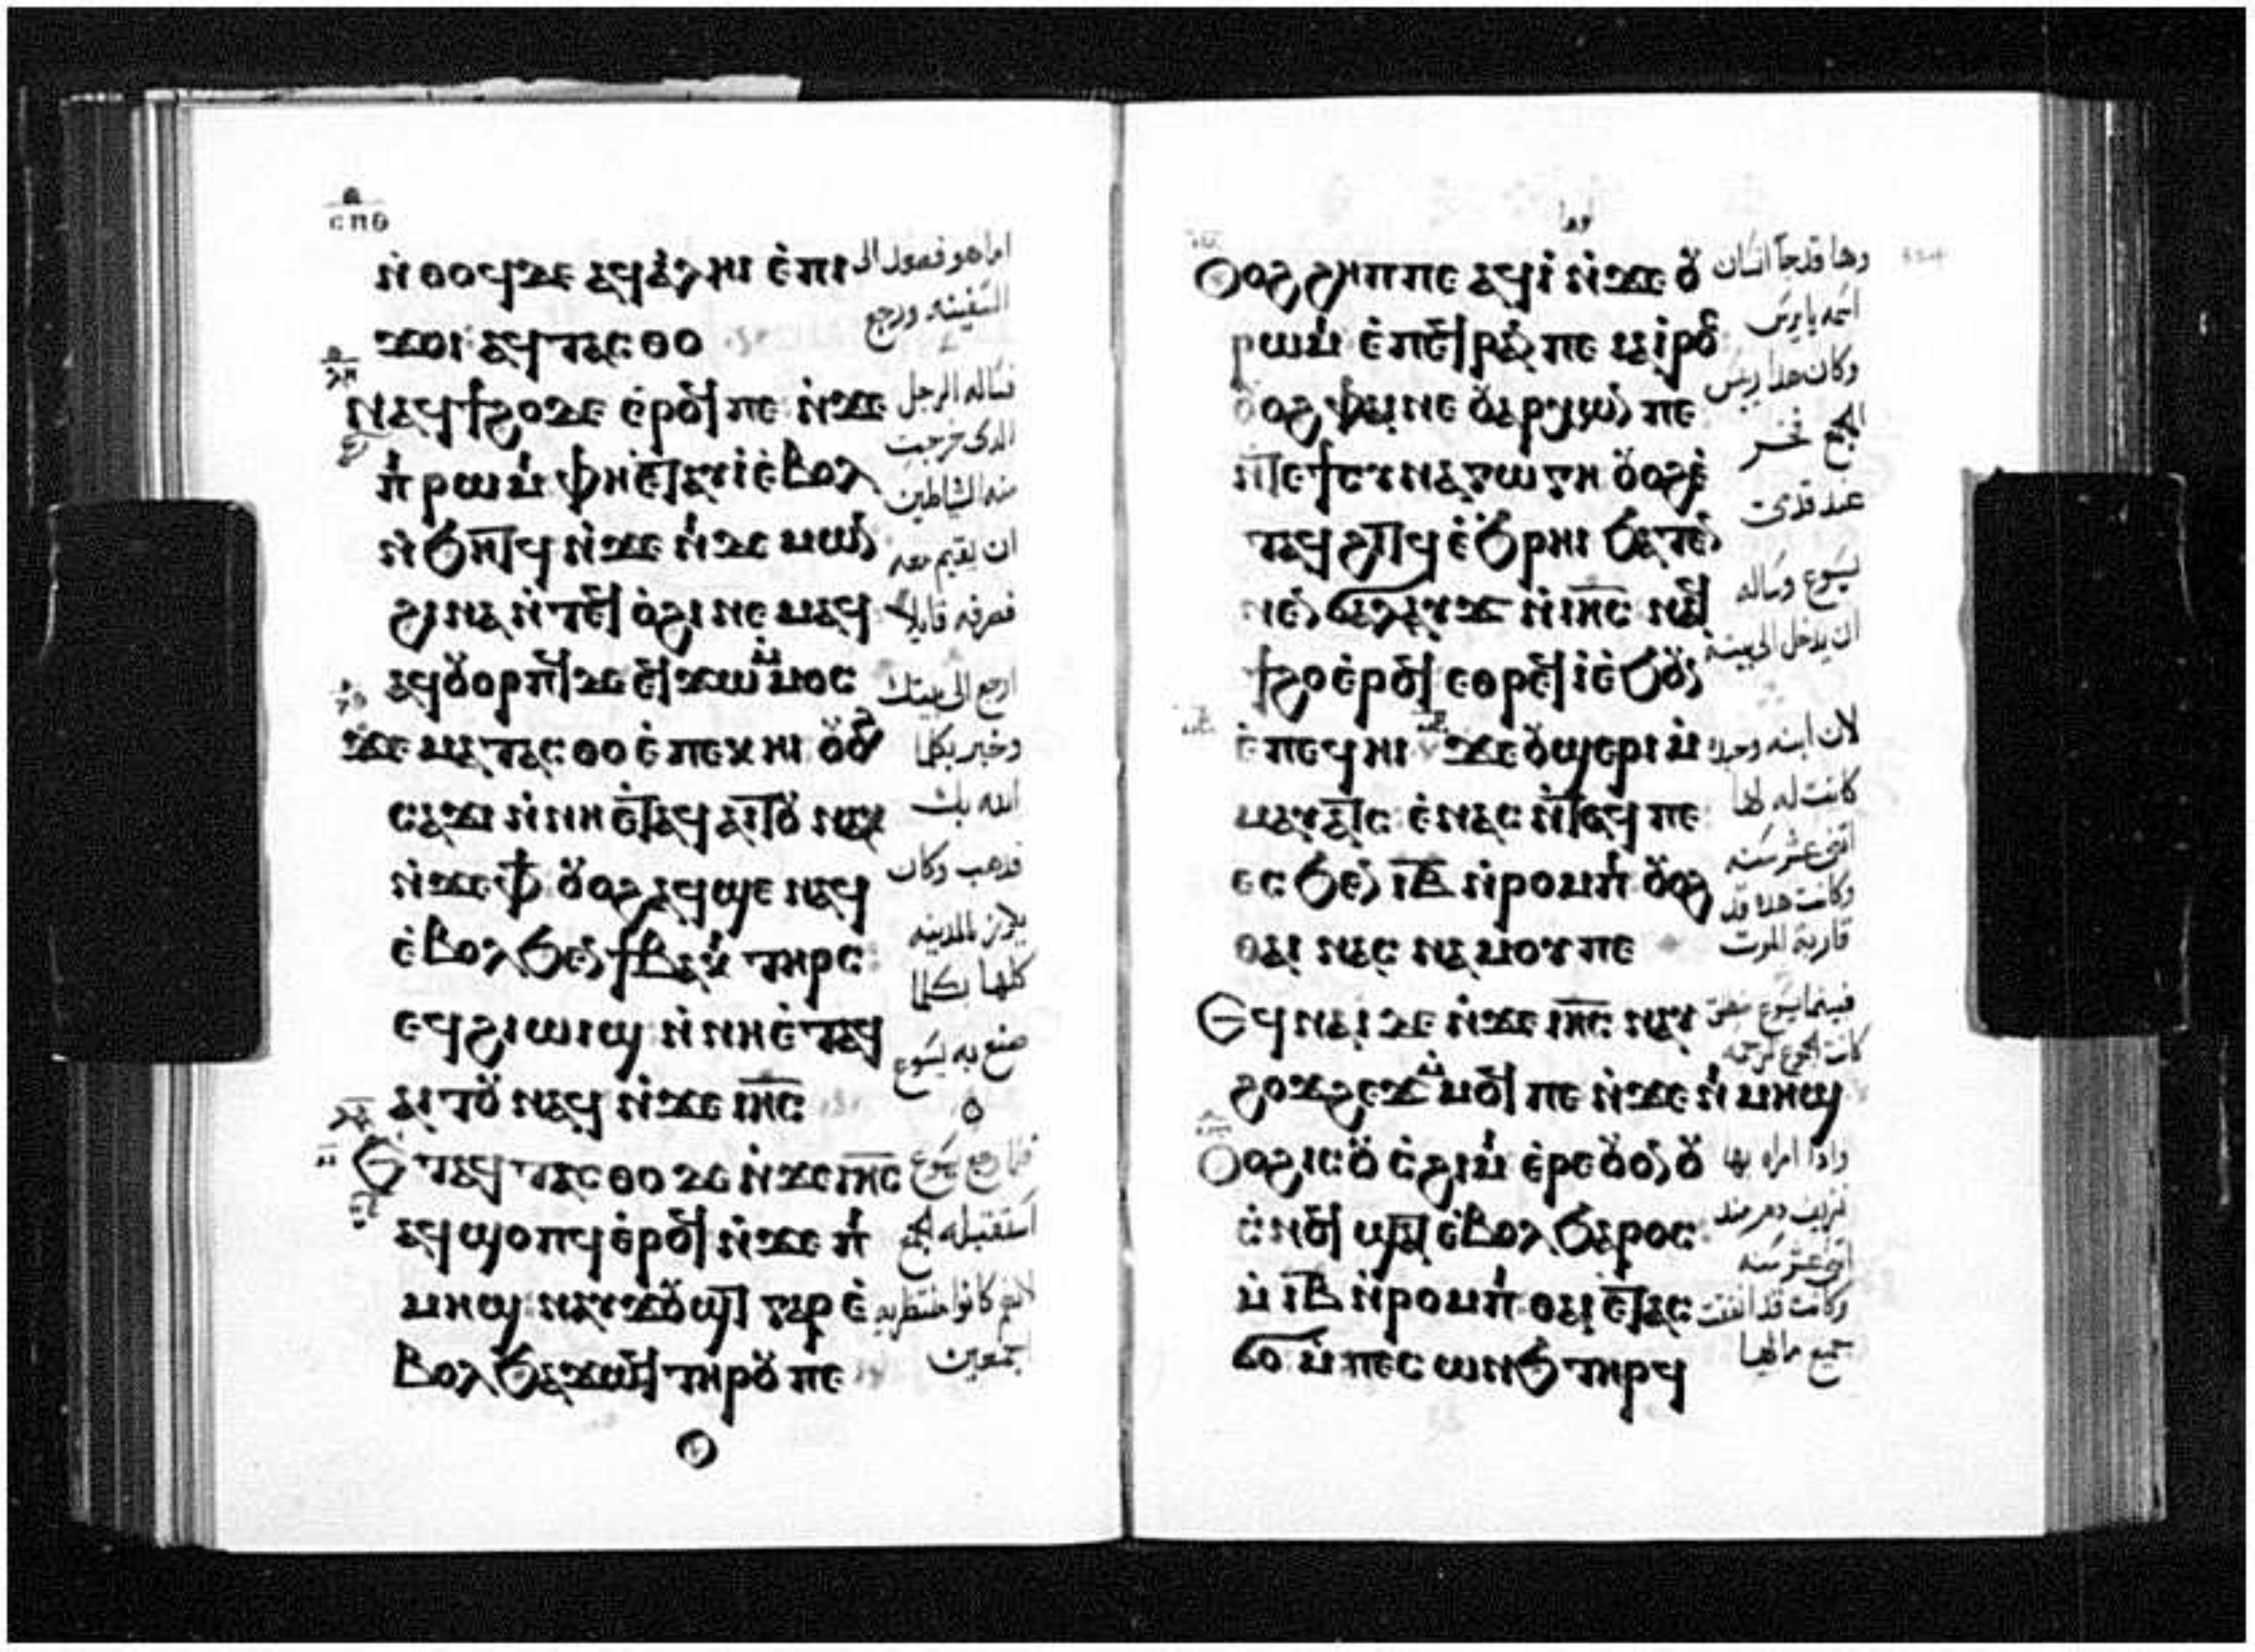 ⲥⲡⲑ
ⲛ̇ⲑⲟϥⲇⲉ ⲁϥⲁ̇ⲗⲏⲓ ⲉ̇ⲡⲓ
ϫⲟⲓ ⲁϥⲧⲁⲥⲑⲟ
ⲛⲁϥϯϩⲟⲇⲉ ⲉ̇ⲣⲟϥ ⲡⲉ ⲛ̇ϫⲉ
ⲡⲓⲣⲱⲙⲓ ⲫⲏⲉⲧⲁⲩⲓ̇ ⲉ̇ⲃⲟⲗ
ⲛ̇ϧⲏⲧϥ ⲛ̇ϫⲉ ⲛⲓⲇⲉⲙⲱⲛ
ϩⲓⲛⲁ ⲛ̇ⲧⲉϥ ⲟ̇ϩⲓ ⲛⲉⲙⲁϥ
ⲁϥⲟⲩⲟⲣⲡϥ ⲇⲉ ⲉϥϫⲱ ⲙ̇ⲙⲟⲥ
ϫⲉ ⲙⲁⲧⲁⲥⲑⲟ ⲉ̇ⲡⲉⲕⲏⲓ ⲟⲩⲟϩ
ⲥⲁϫⲓ ⲛ̇ⲛⲏ ⲉ̇ⲧⲁϥ ⲁⲓⲧⲟⲩ ⲛⲁⲕ
ⲛ̇ϫⲉ ⲫϯ ⲟⲩⲟϩ ⲁϥϣⲉ ⲛⲁϥ
ⲉ̇ⲃⲟⲗ ϧⲉⲛ ϯⲃⲁⲕⲓ ⲧⲏⲣⲥ
ⲉϥϩⲓⲱⲓϣ ⲛ̇ⲛⲏⲉ̇ⲧⲁϥ
ⲁⲓⲧⲟⲩ ⲛⲁϥ ⲛ̇ϫⲉ ⲓⲏⲥ
ⲉⲧⲁϥ ⲧⲁⲥⲑⲟ ⲇⲉ ⲛ̇ϫⲉ ⲓⲏⲥ
ⲁϥϣⲟⲡϥ ⲉ̇ⲣⲟϥ ⲛ̇ϫⲉ ⲡⲓ
ⲙⲏϣ ⲛⲁⲩϫⲟⲩϣⲧ ⲅⲁⲣ ⲉ̇
ⲃⲟⲗ ϧⲁϫⲱϥ ⲧⲏⲣⲟⲩ ⲡⲉ
اما هو فصعد الى
السفينه ورجع
فساله الرجل
الدى خرجت
منه الشياطين
ان يقيم معه
فصرفه قايلا
ارجع الى بيتك
وخبر بكلما
الله بك
فدهب وكان
المدينه
كلها بكلما
صنع به يسوع
فلما رجع يسوع
استقبله الجمع
لانهم كانوا منتظريه
اجمعين
ⲟⲩⲟϩ ϩⲏⲡⲡⲉ ⲁϥⲓ̇ ⲛ̇ϫⲉ ⲟⲩ
ⲣⲱⲙⲓ ⲉ̇ⲡⲉϥⲣⲁⲛ ⲡⲉ ⲓⲁⲓ̇ⲣⲟⲥ
ⲟⲩⲟϩ ⲫⲁⲓ ⲛⲉ ⲟⲩⲁⲣⲭⲱⲛ ⲡⲉ
ⲛ̇ⲧⲉ ϯⲥⲩⲛⲁⲅⲱⲅⲏ ⲟⲩⲟϩ ⲉ̇
ⲧⲁϥ ϩⲓⲧϥ ⲉ̇ϧⲣⲏⲓ ϧⲁⲧⲉⲛ
ⲛⲉⲛϭⲁⲗⲁⲩϫ ⲛ̇ⲓⲏⲥ ⲛⲁϥ
ϯϩⲟ ⲉ̇ⲣⲟϥ ⲉⲑⲣⲉϥ ⲓ̇ ⲉ̇ϧⲟⲩⲛ
ⲉ̇ⲡⲉϥⲏⲓ ϫⲉ ⲟⲩϣⲉⲣⲓ ⲙ̇
ⲙⲁⲩⲁⲧⲥ ⲉ̇ⲛⲁⲥ ⲛ̇ⲧⲁϥ ⲡⲉ
ⲉⲥ ϧⲉⲛ ⲓⲃ ⲛ̇ⲣⲟⲙⲡⲓ ⲟⲩⲟϩ
ⲑⲁⲓ ⲛⲁⲥ ⲛⲁ ⲙⲟⲩ ⲡⲉ
ⲉϥⲛⲁⲓ ⲇⲉ ⲛ̇ϫⲉ ⲓⲏⲥ ⲛⲁⲩ
ϩⲟϫϩⲉϫ ⲙ̇ⲙⲟϥ ⲡⲉ ⲛ̇ϫⲉ ⲛⲓ ⲙⲏϣ
ⲟⲩⲟϩ ⲓⲥ ⲟⲩ ⲥ̇ϩⲓⲙⲓ ⲉ̇ⲣⲉ ⲟⲩⲟⲛ ⲟⲩ
ⲥ̇ⲛⲟϥ ϣⲁⲧ ⲉ̇ⲃⲟⲗ ϧⲁⲣⲟⲥ
ⲙ̇ ⲓⲃ ⲛ̇ⲣⲟⲙⲡⲓ ⲑⲁⲓ ⲉ̇ⲧⲁⲥ
ϭⲟ ⲙ̇ⲡⲉⲥ ⲱⲛϧ ⲧⲏⲣϥ
وها قد جا انسان
اسمه يايرس
وكان هدا رييس
الجمع فخر
عند قدمى
يسوع وساله
ان يدخل الى بيته
لان ابنه وحيده
كانت له لها
اثنى عشر سنه
وكانت هده قد
قاربة الموت
فبينما يسوع منطلق
كانت الجموع تزحمه
وادا امراه بها
نزيف دم مند
اثنى عشر سنه
وكانت قد انفقت
جميع مالها